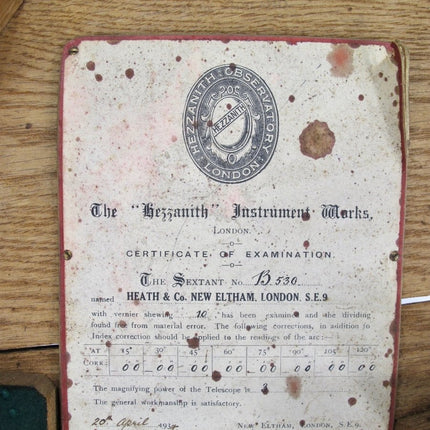 HEZZANITH OBSERVATORY
HEZZANITH
LONDON
The "Hezzanith" Instrument Works,
LONDON.
CERTIFICATE OF EXAMINATION.
THE SEXTANT NO. B.530
named HEATH & Co. NEW ELTHAM, LONDON. S.E.9
with vernier shewing 10 has been examined and the dividing
found free from material error. The following corrections, in addition to
Index correction should be applied to the readings of the arc:—
AT 15° 30° 45° 60° 75° 90° 105° 120°
CORR: 00 00 00 00 00 00 00 00
The magnifying power of the Telescope is 3
The general workmanship is satisfactory.
20th April NEW ELTHAM, LONDON, S.E.9.